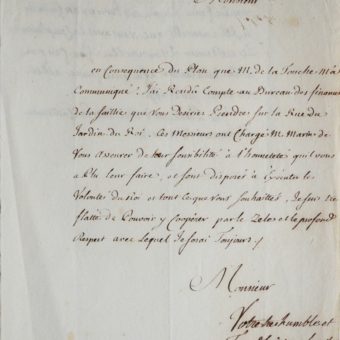 Monsieur
en Consequence du Plan que M. de la Touche M'a
Communiqué J'ai Rendu Compte au Bureau des finances
de la
que Vous Desiries Prendre sur la Rue du
Jardin du Roi. Ces Messieurs ont Chargé M. Martin de
Vous assurer de leur sensibilité a l'honneteté qu'il vous
a Plu leur faire, et sont disposé a Executer les
Volontés du Roi et tout ce que vous souhaittés, Je suis tres
flatté de Pouvoir y Coopérer par le Zele et le profond
Respect avec Lequel Je serai Toujours /
Monsieur
Votre tres humble et